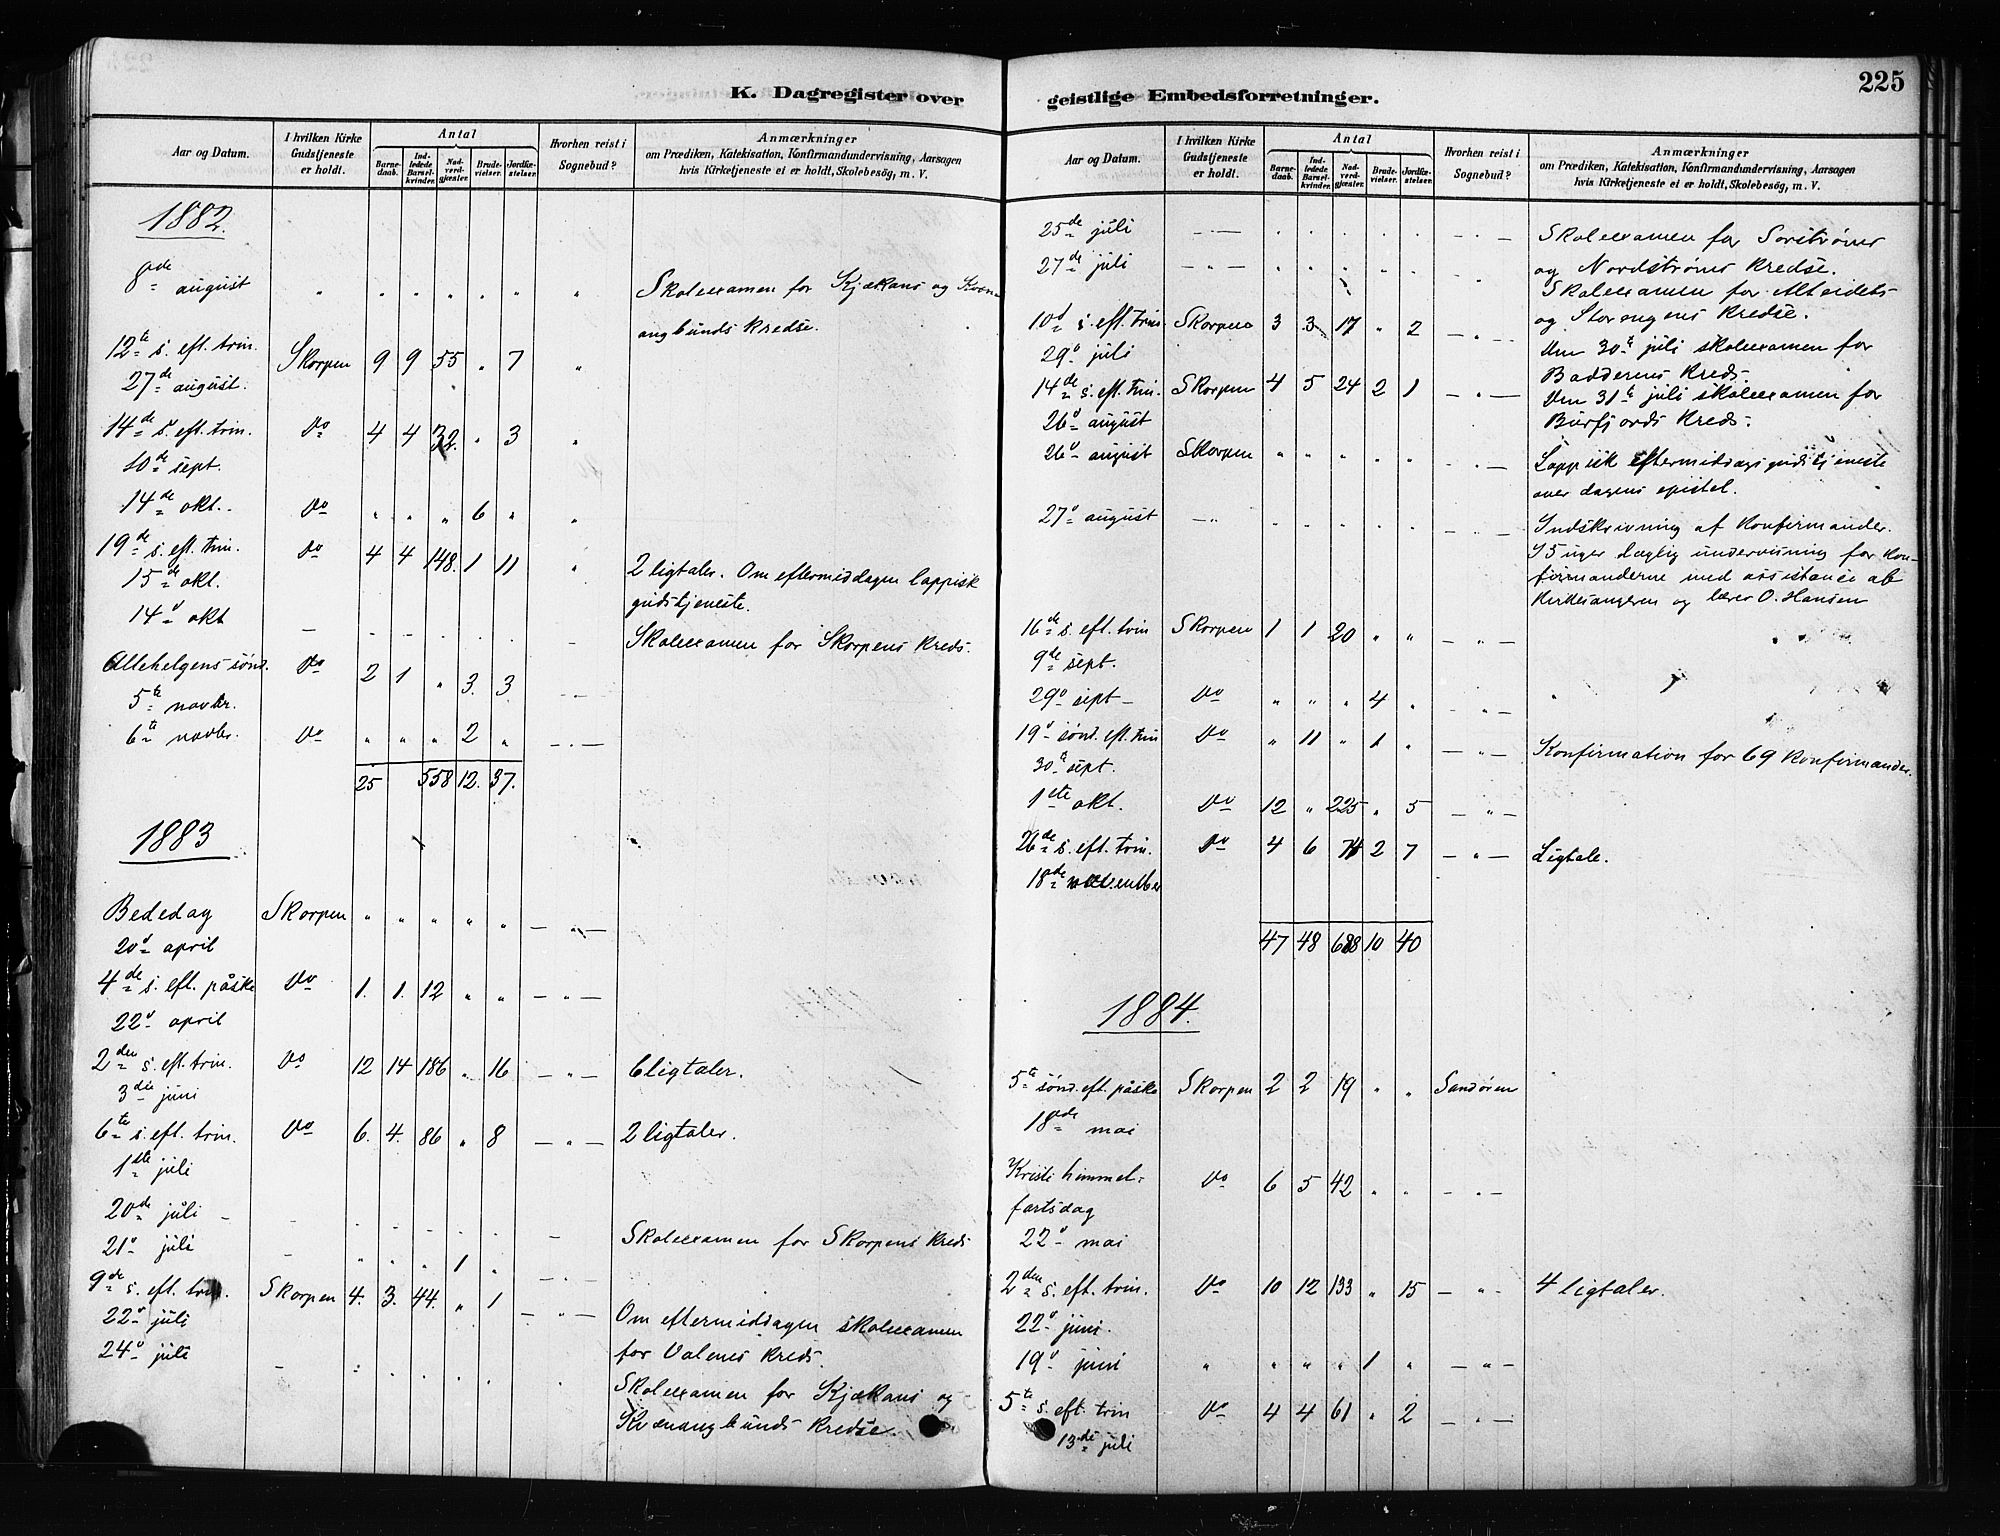 K. Dagregister over
Aar og Datum.
I hvilken Kirke Gudstjeneste er holdt.
Antal
Barne-daab.
Ind-ledede Barsel-kvinder.
Nad-verd-gjæster.
Brude-vielser.
Jordfæ-stelser.
Hvorhen reist i Sognebud?
Anmærkninger
om Prædiken, Katekisation, Konfirmandundervisning, Aarsagen
hvis Kirketjeneste ei er holdt, Skolebesög, m. V.
1882.
8de august " " " " " " " Skoleexamen for Kjækans og Kvæn-
angbunds Kredse.
12te s. eft. trin. Skorpen 9 9 55 " 7 "
27de august.
14de s. eft. trin. Do 4 4 32 " 3 "
10de sept.
14de okt. Do " " " 6 " "
19de s. eft. trin. Do 4 4 148. 1 11 " 2 ligtaler. Om eftermiddagen lappisk
15de okt. gudstjeneste.
14d okt – Skoleexamen for Skorpens Kreds.
Allehelgens sønd. Do 2 1 " 3. 3 – " –
5te novbr.
6te novbr. Do " " " 2 " – " –
25 558 12. 37.
1883
Bededag Skorpen " " " " " – " –
20d april
4de s. eft. påske Do 1. 1. 12 " " – " –
22d april
2den s. eft. trin. Do 12 14 186 " 16 – " – 6 ligtaler.
3die juni
6te s. eft. trin. Do 6. 4. 86 " 8 – " – 2 ligtaler.
1ste juli
20de juli – Skoleexamen for Skorpens Kreds
21d juli – " " " 1 " – " –
9de s. eft. trin. Skorpen 4. 3. 44. " 1 – " – Om eftermiddagen skoleexamen
22d juli for Valenes Kreds.
24d juli – Skoleexamen for Kjækans og
Kvænangbunds Kredse.
geistlige Embedsforretninger.
225
Aar og Datum.
I hvilken Kirke Gudstjeneste er holdt.
Antal
Barne-daab.
Ind-ledede Barsel-kvinder.
Nad-verd-gjæster.
Brude-vielser.
Jordfæ-stelser.
Hvorhen reist i Sognebud?
Anmærkninger
om Prædiken, Katekisation, Konfirmandundervisning, Aarsagen
hvis Kirketjeneste ei er holdt, Skolebesög, m. V.
25de juli – – – " – Skoleexamen for Sorstrøms
og Nordstrøms Kredse.
27de juli – " – Skoleexamen for Alteidets
og Storengens Kredse.
10d s. eft. trin. Skorpen 3 3 17 " 2 – " – Den 30te juli skoleexamen for
29d juli Badderens Kreds.
14de s. eft. trin. Skorpen 4 5 24 2 1 – " – Den 31te juli skoleexamen for
26d august Burfjords Kreds.
26d august Skorpen " " " " " – " – Lappisk eftermiddagsgudstjeneste
over dagens epistel.
27d august – " – – " – Indskrivning af Konfirmander.
I 5 uger daglig undervisning for Kon-
firmanderne med assistance af
Kirkesangeren og lærer O. Hansen
16de s. eft. trin Skorpen 1 1 20 " " – " –
9de sept.
29d sept – Do " " " 4 " – " –
19d sønd. eft. trin Do " 11 " 1 " – " – Konfirmation for 69 Konfirmander.
30te sept.
1ste okt. Do 12 " 225 " 5 – " –
26de s. eft. trin. Do 4 6 74 2 7 – " – Ligtale.
18de november
47 48 688 10 40
1884.
5te sønd. eft. påske Skorpen 2 2 19 " " Sandøren
18de mai
Kristi himmel- Do 6 5 42 " " – " –
fartsdag
22d mai
2den s. eft. trin. Do 10 12 133 " 15 – " – 4 ligtaler.
22d juni.
19d juni " " " " 1 " – " –
5te s. eft. trin Do 4 4 61 " 2 – " –
13de juli